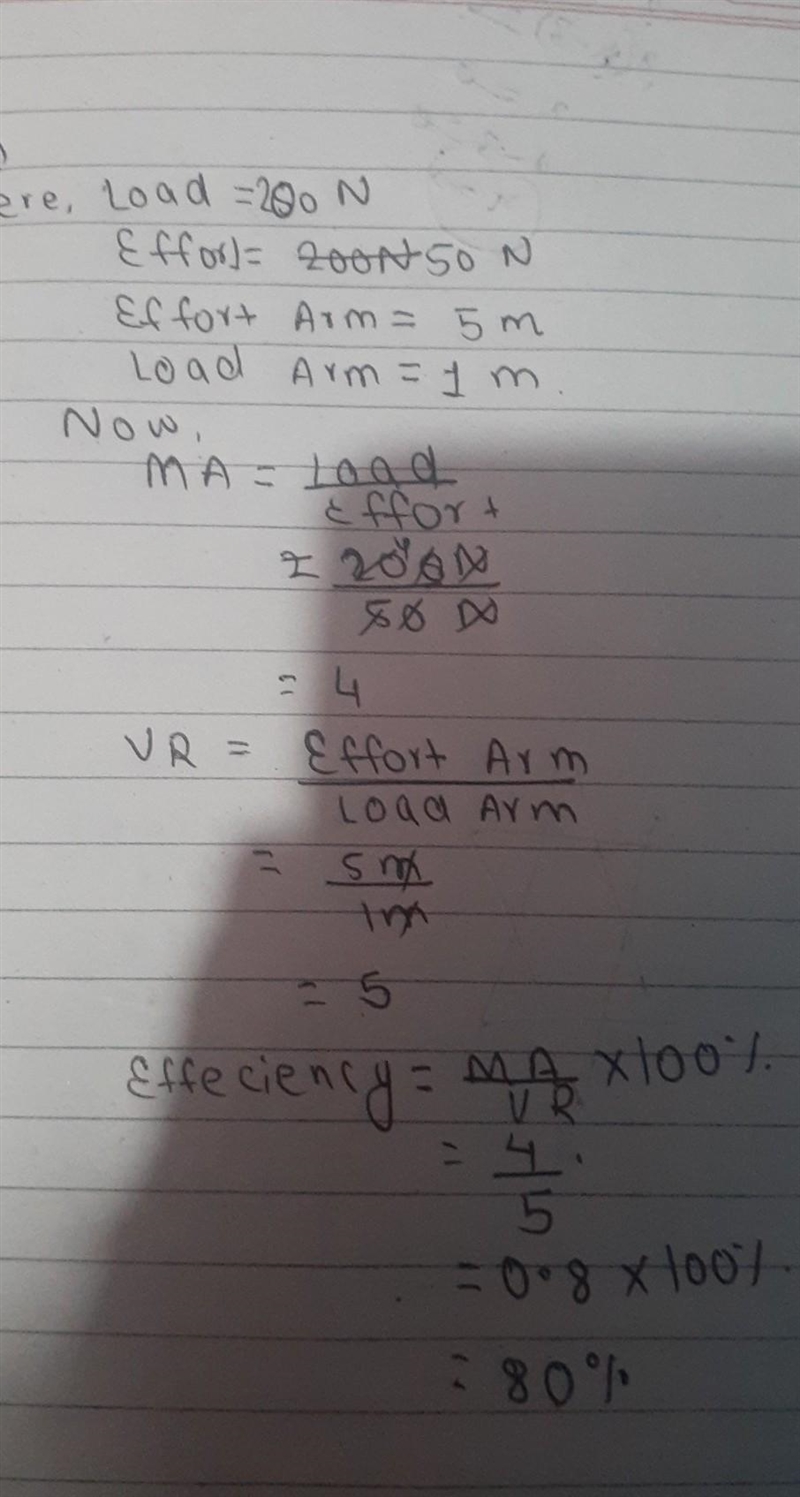 ere, Load = 200 N
Effort = 200N 50 N
Effort Arm = 5 m
Load Arm = 1 m.
Now,
MA = Load
Effort
= 200 N
50 N
= 4
VR = Effort Arm
Load Arm
= 5 m
1m
= 5
Effeciency = MA × 100%.
VR
= 4.
5
= 0.8 × 100%.
= 80%